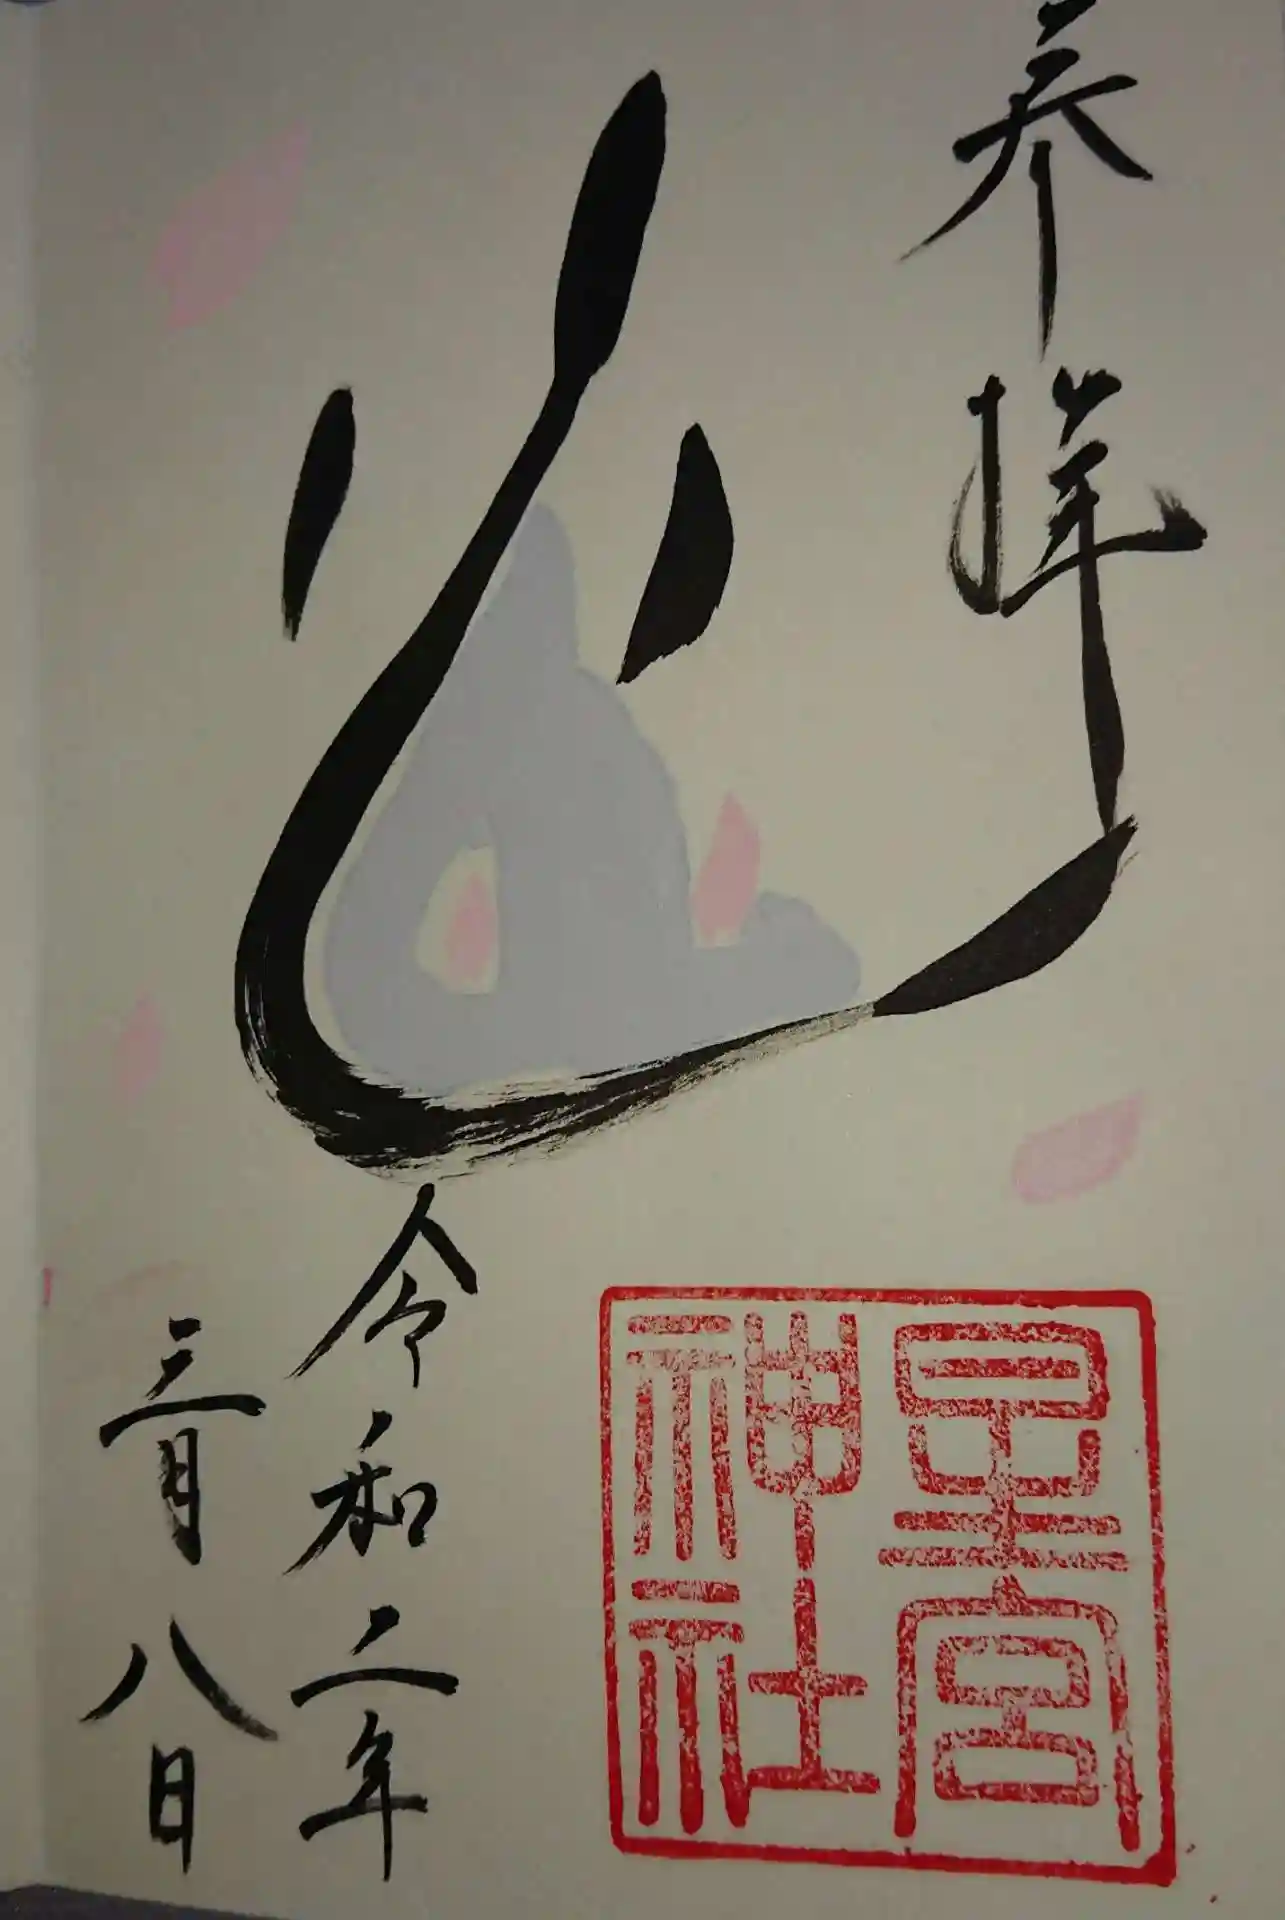 奉拝
心
星宮
神社
令和二年
三月八日